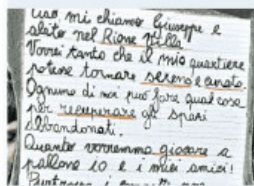 Ciao mi chiamo Giuseppe e
abito nel Rione Villa
Vorrei tanto che il mio quartiere
potesse tornare sereno e amato.
Ognuno di noi può fare qualcosa
per recuperare gli spazi
abbandonati.
Quanto vorremmo giocare a
pallone io e i miei amici!